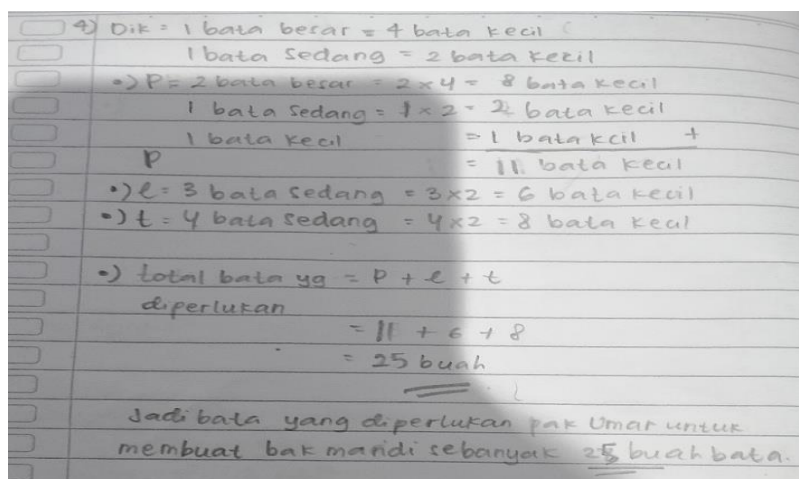 4) Dik = 1 bata besar = 4 bata kecil
1 bata sedang = 2 bata kecil
•) P = 2 bata besar = 2 x 4 = 8 bata kecil
1 bata sedang = 1 x 2 = 2 bata kecil
1 bata kecil = 1 bata kcil +
P = 11 bata kecil
•) l = 3 bata sedang = 3 x 2 = 6 bata kecil
•) t = 4 bata sedang = 4 x 2 = 8 bata kecil
•) total bata yg = P + l + t
diperlukan
= 11 + 6 + 8
= 25 buah
Jadi bata yang diperlukan pak Umar untuk
membuat bak mandi sebanyak 25 buah bata.